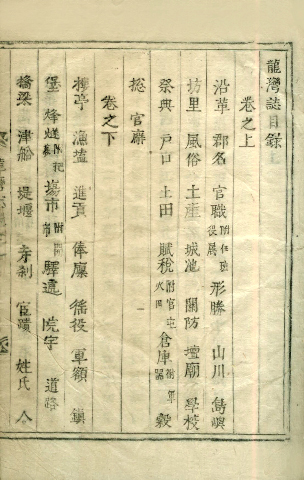 龍灣誌目錄
卷之上
沿革 郡名 官職 形勝 山川 島嶼
坊里 風俗 土産 城池 關防 壇廟 學校
祭典 戶口 土田 賦稅 附官屯 倉庫 附軍器 穀
摠 官廨
卷之下
樓亭 漁塩 進貢 俸廩 徭役 軍額 鎭
堡 烽燧 塲市 驛遞 院宇 道路
橋梁 津船 堤堰 寺刹 宦蹟 姓氏 人